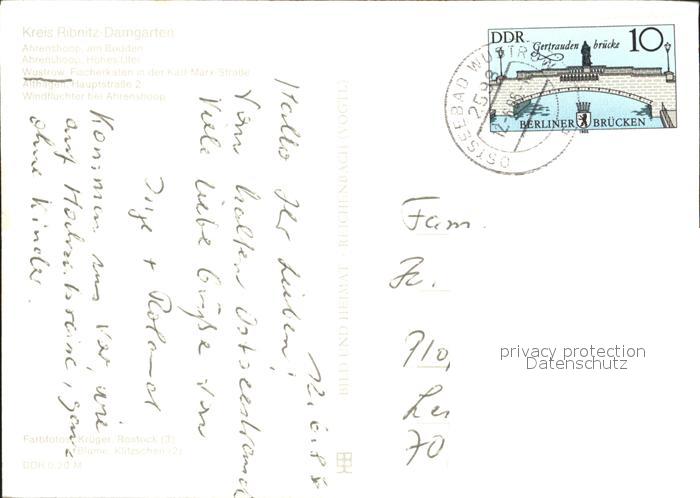 Kreis Ribnitz-Damgarten
Ahrenshoop, am Bodden
Ahrenshoop, Hohes Ufer
Wustrow, Fischerkaten in der Karl-Marx-Straße
Althagen, Hauptstraße 2
Windflüchter bei Ahrenshoop
DDR
10
Gertraudenbrücke
BERLINER BRÜCKEN
OSTSEEBAD WUSTROW
Hallo Ihr Lieben!
Vom kalten Ostseestrand
Viele liebe Grüße von
Inge + Roland
Kommen uns vor, wie
auf Hochzeitsreise, ganz
ohne Kinder.
BILD UND HEIMAT · REICHENBACH (VOGTL)
Fam.
Fr.
70
privacy protection
Datenschutz
Farbfotos: Krüger, Rostock (3)
Blume, Klitzschen (2)
DDR 0,20 M